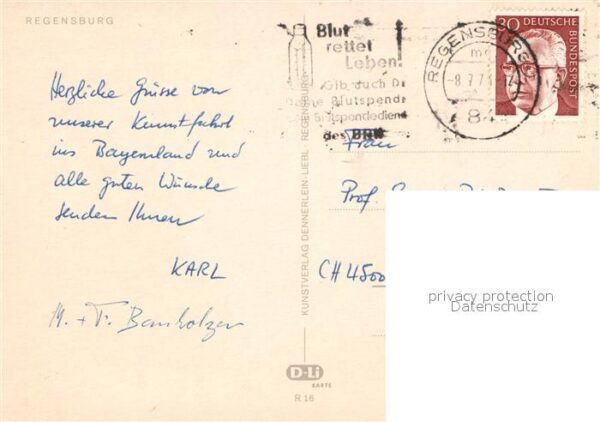 REGENSBURG
Herzliche Grüsse von
unserer Kunstfahrt
ins Bayernland und
alle guten Wünsche
senden Ihnen
KARL
M. + F.
KUNSTVERLAG DENNERLEIN-LIEBL REGENSBURG
D-Li
KARTE
R 16
Blut
rettet
Leben!
Gib auch D
Blutspend
Blutspendedien
des BRK
REGENSBURG
-8.7.7
84
30 DEUTSCHE
BUNDESPOST
Frau
Prof.
CH 4500
privacy protection
Datenschutz